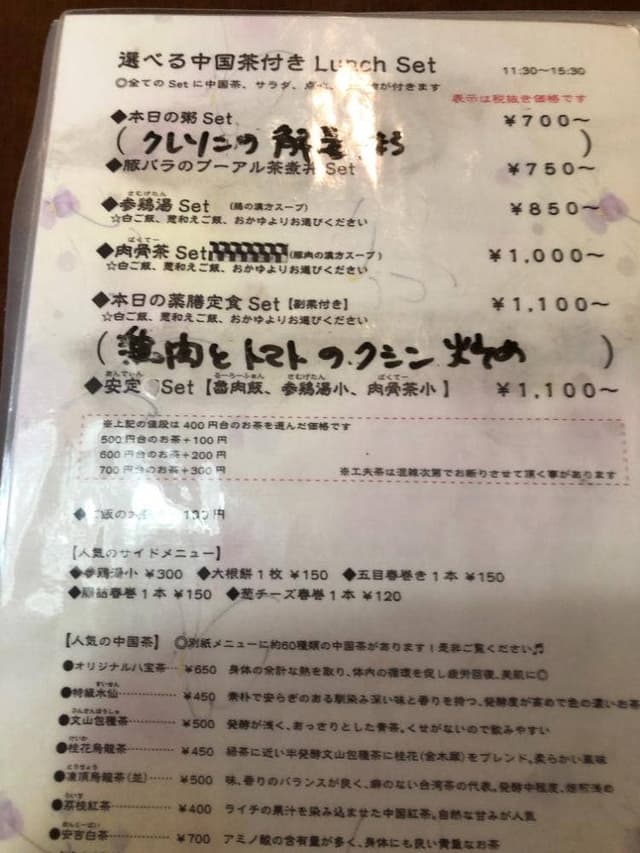 選べる中国茶付き Lunch Set 11:30～15:30
◎全ての Set に中国茶、サラダ、点 が付きます
表示は税抜き価格です
◆本日の粥 Set ¥700～
(クレソンの )
◆豚バラのプーアル茶煮丼 Set ¥750～
さむげたん
◆参鶏湯 Set (鶏の漢方スープ) ¥850～
☆白ご飯、葱和えご飯、おかゆよりお選びください
ばくてー
◆肉骨茶 Set (豚肉の漢方スープ) ¥1,000～
☆白ご飯、葱和えご飯、おかゆよりお選びください
◆本日の薬膳定食 Set【副菜付き】 ¥1,100～
☆白ご飯、葱和えご飯、おかゆよりお選びください
(鶏肉とトマトのクミン炒め)
あんでぃん るーろーふぁん さむげたん ばくてー
◆安定 Set【魯肉飯、参鶏湯小、肉骨茶小】 ¥1,100～
※上記の値段は 400 円台のお茶を選んだ価格です
500 円台のお茶＋100 円
600 円台のお茶＋200 円
700 円台のお茶＋300 円 ※工夫茶は混雑次第でお断りさせて頂く事があります
◆ご飯の 100 円
【人気のサイドメニュー】
◆参鶏湯小 ¥300 ◆大根餅1枚 ¥150 ◆五目春巻き1本 ¥150
春巻1本 ¥150 ◆葱チーズ春巻1本 ¥120
【人気の中国茶】 ◎別紙メニューに約60種類の中国茶があります！是非ご覧ください♬
●オリジナル八宝茶… ¥650 身体の余計な熱を取り、体内の循環を促し疲労回復、美肌に◎
すいせん
●特級水仙………… ¥450 素朴で安らぎのある馴染み深い味と香りを持つ、発酵度が高めで色の濃いお茶
ぶんさんほうしゅ
●文山包種茶……… ¥500 発酵が浅く、あっさりとした青茶。くせがないので飲みやすい
けいか
●桂花烏龍茶……… ¥450 緑茶に近い半発酵文山包種茶に桂花(金木犀)をブレンド。柔らかい風味
とうちょう
●凍頂烏龍茶(並)…… ¥500 味、香りのバランスが良く、癖のない台湾茶の代表。発酵中程度、焙煎浅め
らいち
●茘枝紅茶………… ¥400 ライチの果汁を染み込ませた中国紅茶。自然な甘みが人気
あんじーばい
●安吉白茶………… ¥700 アミノ酸の含有量が多く、身体にも良い貴重なお茶